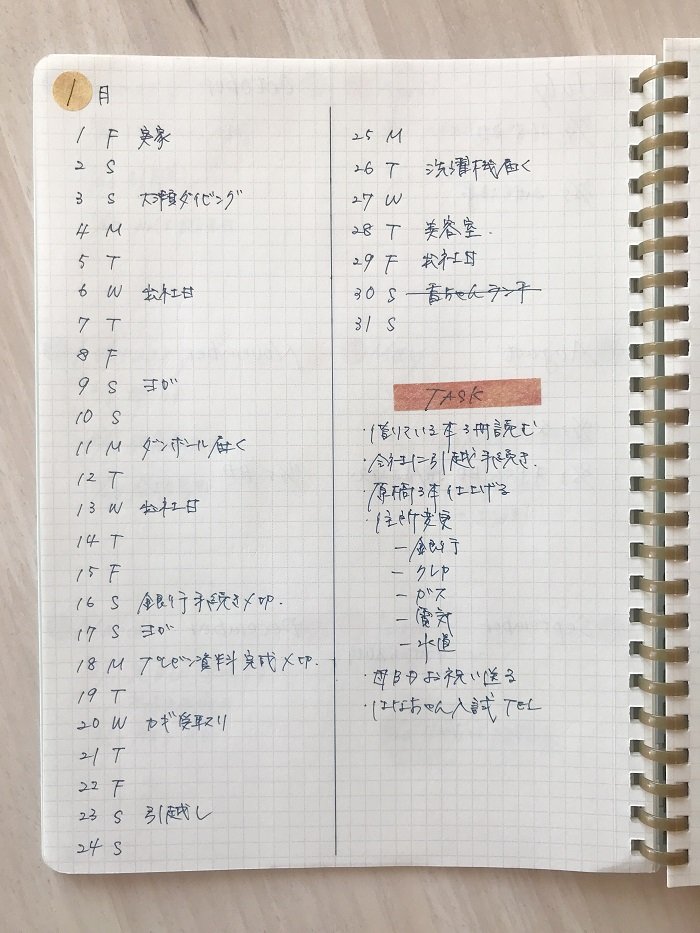 1月
1 F 実家
2 S
3 S 大瀬ダイビング
4 M
5 T
6 W 出社日
7 T
8 F
9 S ヨガ
10 S
11 M ダンボール届く
12 T
13 W 出社日
14 T
15 F
16 S 銀行手続き〆切.
17 S ヨガ
18 M プレゼン資料完成〆切.
19 T
20 W カギ受取り
21 T
22 F
23 S 引越し
24 S
25 M
26 T 洗濯機届く
27 W
28 T 美容室.
29 F 出社日
30 S ちゃんランチ
31 S
TASK
・借りている本3冊読む
・会社に引越手続き.
・原稿3本仕上げる
・住所変更
－銀行
－クレカ
－ガス
－電気
－水道
・母日お祝い送る
・はなちゃん入試TEL